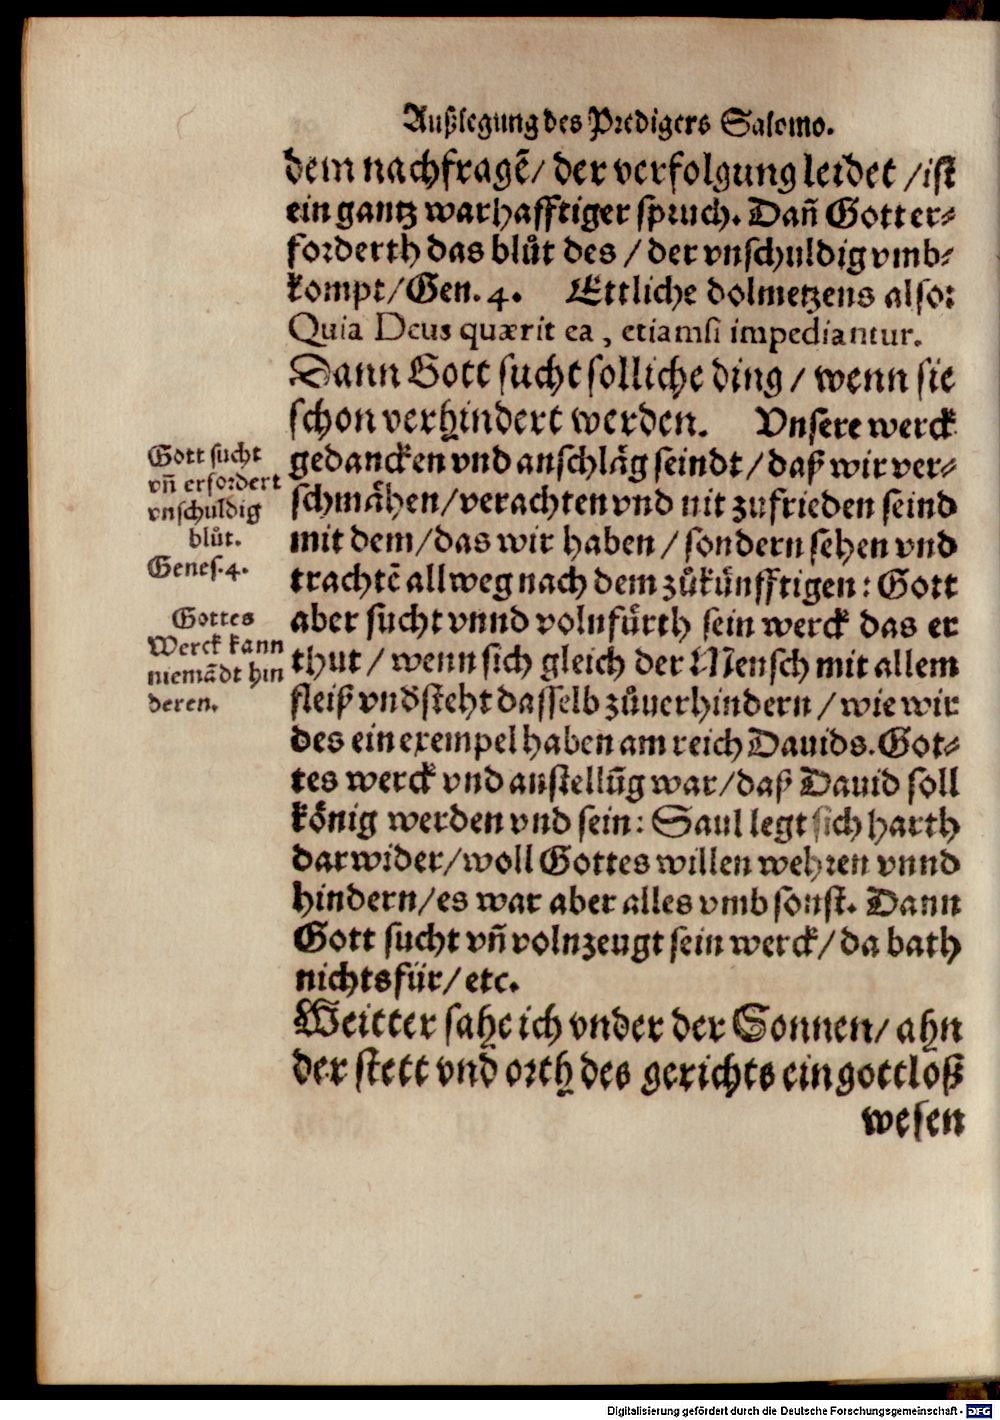 Außlegung des Predigers Salomo.
dem nachfragẽ/ der verfolgung leidet /ist
ein gantz warhafftiger spruch. Dañ Gott er-
forderth das blůt des / der vnschuldig vmb-
kompt/Gen. 4. Ettliche dolmetzens also:
Quia Deus quærit ea , etiamsi impediantur.
Dann Gott sucht solliche ding / wenn sie
schon verhindert werden. Vnsere werck
gedancken vnd anschläg seindt/daß wir ver-
schmähen/verachten vnd nit zufrieden seind
mit dem/das wir haben / sondern sehen vnd
trachtẽ allweg nach dem zůkünfftigen: Gott
aber sucht vnnd volnfürth sein werck das er
thut / wenn sich gleich der Mensch mit allem
fleiß vnd̃steht dasselb zůuerhindern / wie wir
des ein exempel haben am reich Dauids. Got-
tes werck vnd anstellũg war/daß Dauid soll
könig werden vnd sein: Saul legt sich harth
darwider/woll Gottes willen wehren vnnd
hindern/es war aber alles vmb sonst. Dann
Gott sucht vñ volnzeugt sein werck/da bath
nichts für/etc.
Weitter sahe ich vnder der Sonnen/ ahn
der stett vnd orth des gerichts ein gottloß
wesen
Gott sucht
vñ erfordert
vnschuldig
blůt.
Genes.4.
Gottes
Werck kann
niemãdt hin
deren.
Digitalisierung gefördert durch die Deutsche Forschungsgemeinschaft - DFG